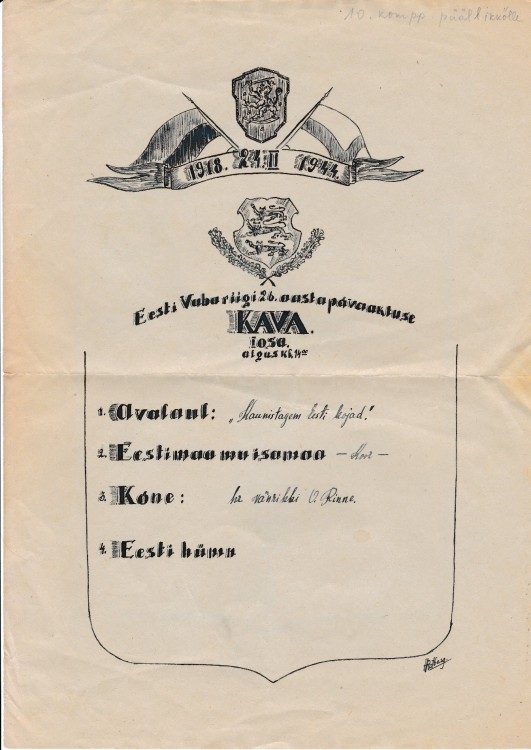 10. komp. päällikölle
1918. 24.II 1944.
Eesti Vabariigi 26. aastapäva aktuse
KAVA.
I osa.
algus kl. 14⁰⁰
1. Avalaul: „Kaunistagem Eesti kojad."
2. Eestimaa mu isamaa – Koor –
3. Kõne: hr. vänrikki O. Rinne.
4. Eesti hümn